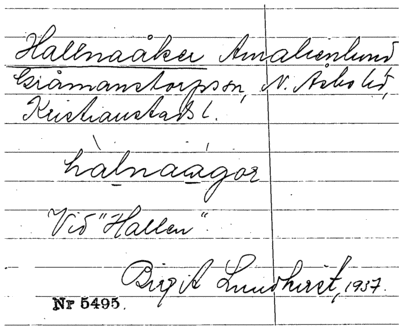 Hallnaåker Amalienlund
Gråmanstorps sn, N. Åsbo hd,
Kristianstads l.
hàlnaágor
Vid "Hallen".
Birgit Lundkvist, 1937.
Nr 5495.